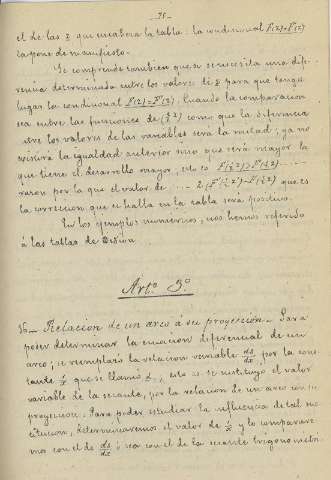 - 75 -
el de las z que encabeza la tabla: la condicional F(z)=F'(z)
la pone de manifiesto.
Se comprende tambien que se necesita una dife-
rencia determinada entre los valores de z para que tenga
lugar la condicional F(z)=F'(z). Cuando la comparacion
sea entre las funciones de (½ z) como que la diferencia
entre los valores de las variables será la mitad; ya no
existirá la igualdad anterior sino que será mayor la
que tiene el desarrollo mayor, esto es F(½z)>F'(½z)
razon por la que el valor de 2(F(½z)-F'(½z)) que es
la correccion que se halla en la tabla será positivo.
En los ejemplos numéricos, nos hemos referido
á las tablas de
Artº 3º
Relacion de un arco á su proyeccion. Para
poder determinar la ecuacion diferencial de un
arco; se reemplazó la relacion variable ds/dx por la cons-
tante que se llamó esto es se sustituyó el valor
variable de la secante, por la relacion de un arco con su
proyeccion. Para poder estudiar la influencia de tal sus-
titucion, determinaremos el valor de y lo comparare-
mos con el de ds/dx ó sea con el de la secante trigonometri-